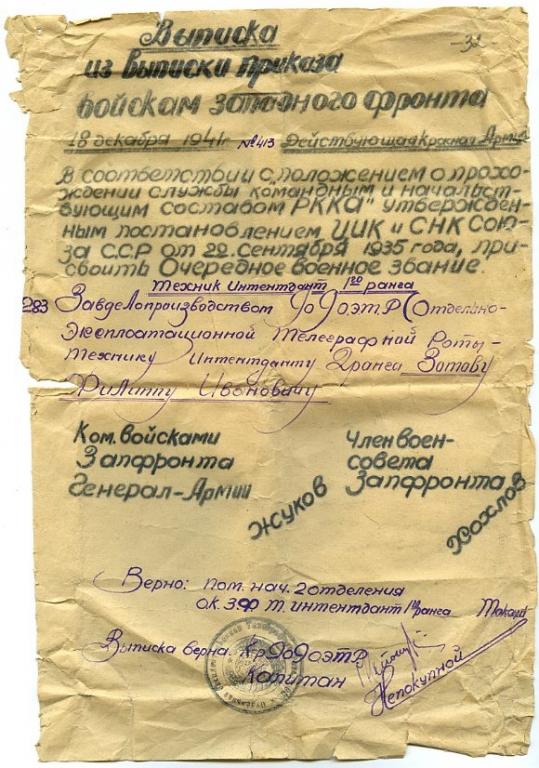 Выписка
-32-
из выписки приказа
войскам западного фронта
18 декабря 1941г №413 Действующая Красная Армия
В соответствии с "положением о прохо-
ждении службы командным и начальст-
вующим составом РККА" утвержден-
ным постановлением ЦИК и СНК СОЮ-
за ССР от 22 сентября 1935 года, при-
своить очередное военное звание:
Техник Интендант 1го ранга
283 Завделопроизводством (Отдельно-
Эксплоатационной Телеграфной Роты-
технику интенданту 2 ранга Зотову
Филиппу Ивановичу
Ком. войсками
Запфронта
Генерал-Армии
Жуков
Член воен-
совета
Запфронта
Хохлов
Верно: пом. нач. 2 отделения
о.к. З.Ф т. интентдант 1го ранга
Выписка верна:
Капитан
Непокупной